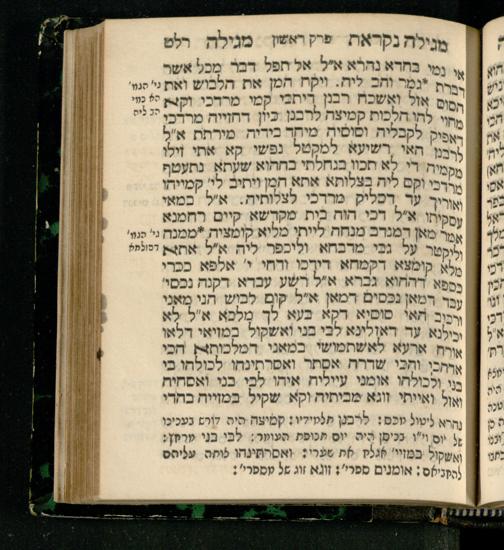 מגילה נקראת פרק ראשון מגילה רלט
אי נמי בחדא נהרא א"ל אל תפל דבר מכל אשר
דברת *גמר והב ליה. ויקח המן את הלבוש ואת
הסוס אזל ואשכח רבנן דיתבי קמי מרדכי וקא
מחוי להו הלכות קמיצה לרבנן כיון דחזייה מרדכי
דאפיק לקבליה וסוסיה מיחד בידיה מירתת א"ל
לרבנן האי רשיעא למקטל נפשי קא אתי זילו
מקמיה די לא תכוו בגחלתו בההוא שעתא נתעטף
מרדכי וקם ליה בצלותא אתא המן ויתיב לי' קמייהו
ואוריך עד דסליק מרדכי לצלותיה. א"ל במאי
עסקיתו א"ל דכי הוה בית מקדשא קיים רחמנא
אמר מאן דמנדב מנחה לייתי מליא קומציה *ממנחה
וליקטר על גבי מדבחא וליכפר ליה א"ל אתא
מלא קומצא דקמחא דידכו ודחי י' אלפא ככרי
כספא דההוא גברא א"ל רשע עבדא דקנה נכסי'
עבד דמאן נכסים דמאן א"ל קום לבוש הני מאני
ורכוב האי סוסיא דקא בעא לך מלכא א"ל לא
יכילנא עד דאזלינא לבי בני ואשקול במזיאי דלאו
אורח ארעא לאשתמושי במאני דמלכותא הכי
אדהכי והכי שדרה אסתר ואסרתינהו לכולהו בי
בני ולכולהו אומני עייליה איהו לבי בני ואסחיה
ואזל ואייתי זוגא מביתיה וקא שקיל במזייה בהדי
גי' הגמ'
הא נמי
הב ליה
גי' הגמ'
דסולתא
נהרא ליטול מכס: לרבנן תלמידיו: קמיצה היה דורש בעניינו
של יום וי"ו בניסן היה יום תנופת העומר: לבי בני מרחץ:
ואשקול במזיי' אגלח את שערי: ואסרתינהו צותה עליהם
להחביאם: אומנים ספרי': זוגא זוג של מספרי':